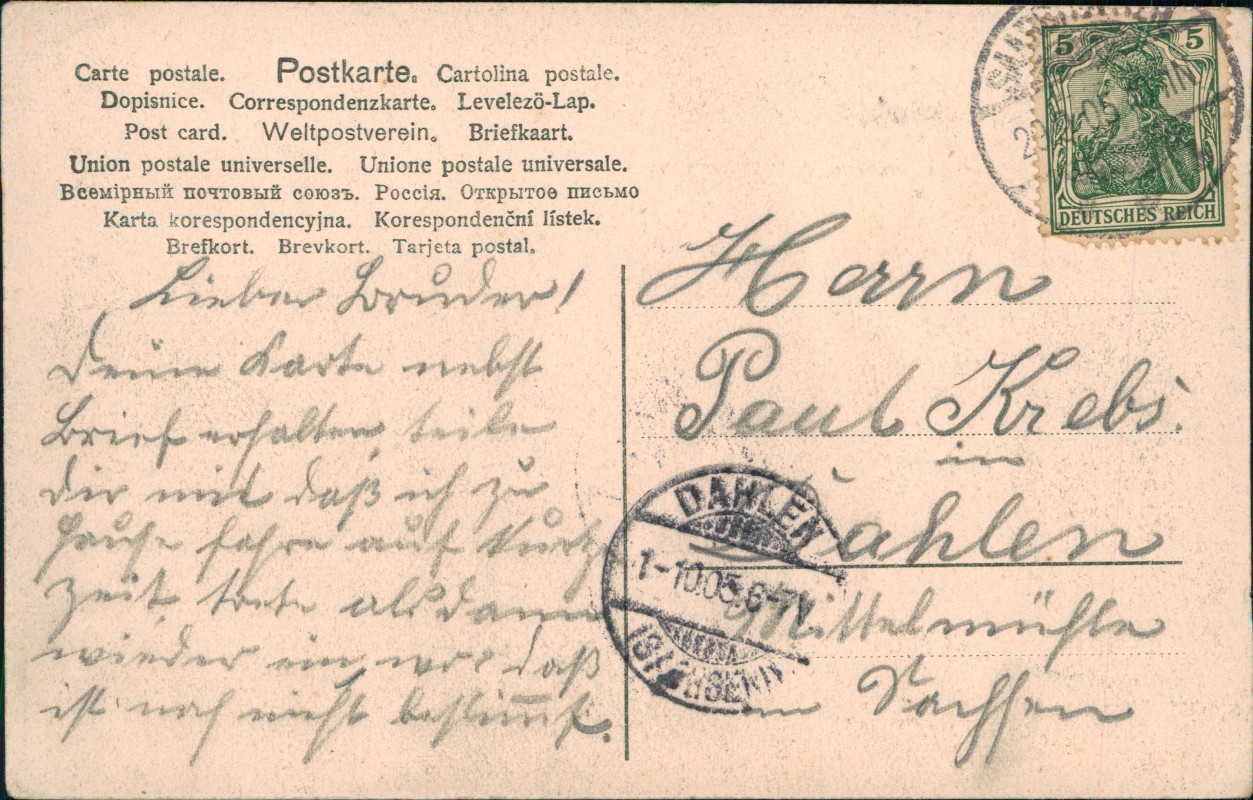 Carte postale. Postkarte. Cartolina postale.
Dopisnice. Correspondenzkarte. Levelezö-Lap.
Post card. Weltpostverein. Briefkaart.
Union postale universelle. Unione postale universale.
Всемірный почтовый союзъ. Россія. Открытое письмо
Karta korespondencyjna. Korespondenční lístek.
Brefkort. Brevkort. Tarjeta postal.
5 5
DEUTSCHES REICH
Lieber Bruder!
Deine Karte nebst
Brief erhalten, teile
Dir mit daß ich zu
Hause fahre auf kurze
Zeit trete alsdann
wieder ein, wo? daß
ist noch nicht bestimmt.
Herrn
Paul Krebs.
in
Dahlen
Mittelmühle
in Sachsen
DAHLEN
1-10.05. 6-7V
(SACHSEN)